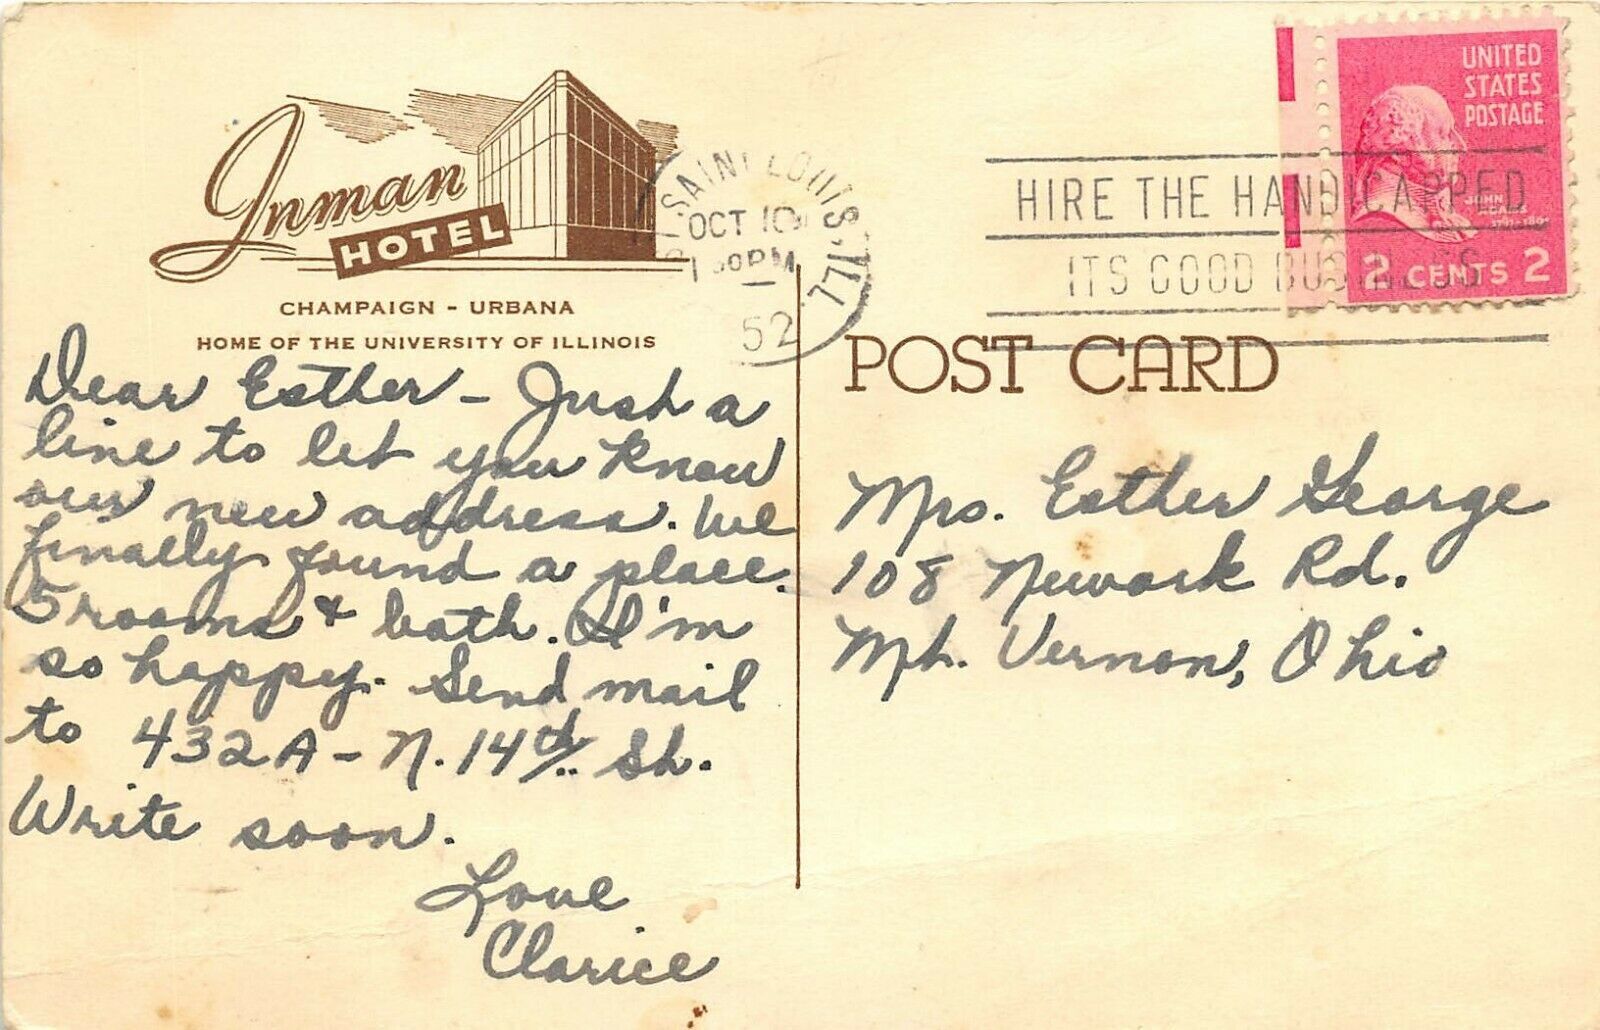 Inman
HOTEL
CHAMPAIGN - URBANA
HOME OF THE UNIVERSITY OF ILLINOIS
SAINT LOUIS, ILL
OCT 10
PM
52
HIRE THE HANDICAPPED
ITS GOOD BUSINESS
UNITED
STATES
POSTAGE
JOHN
ADAMS
2 CENTS 2
POST CARD
Dear Esther - Just a
line to let you know
our new address. We
finally found a place.
5 rooms & bath. I'm
so happy. Send mail
to 432A - N. 14th St.
Write soon.
Love
Clarice
Mrs. Esther George
108 Newark Rd.
Mt. Vernon, Ohio